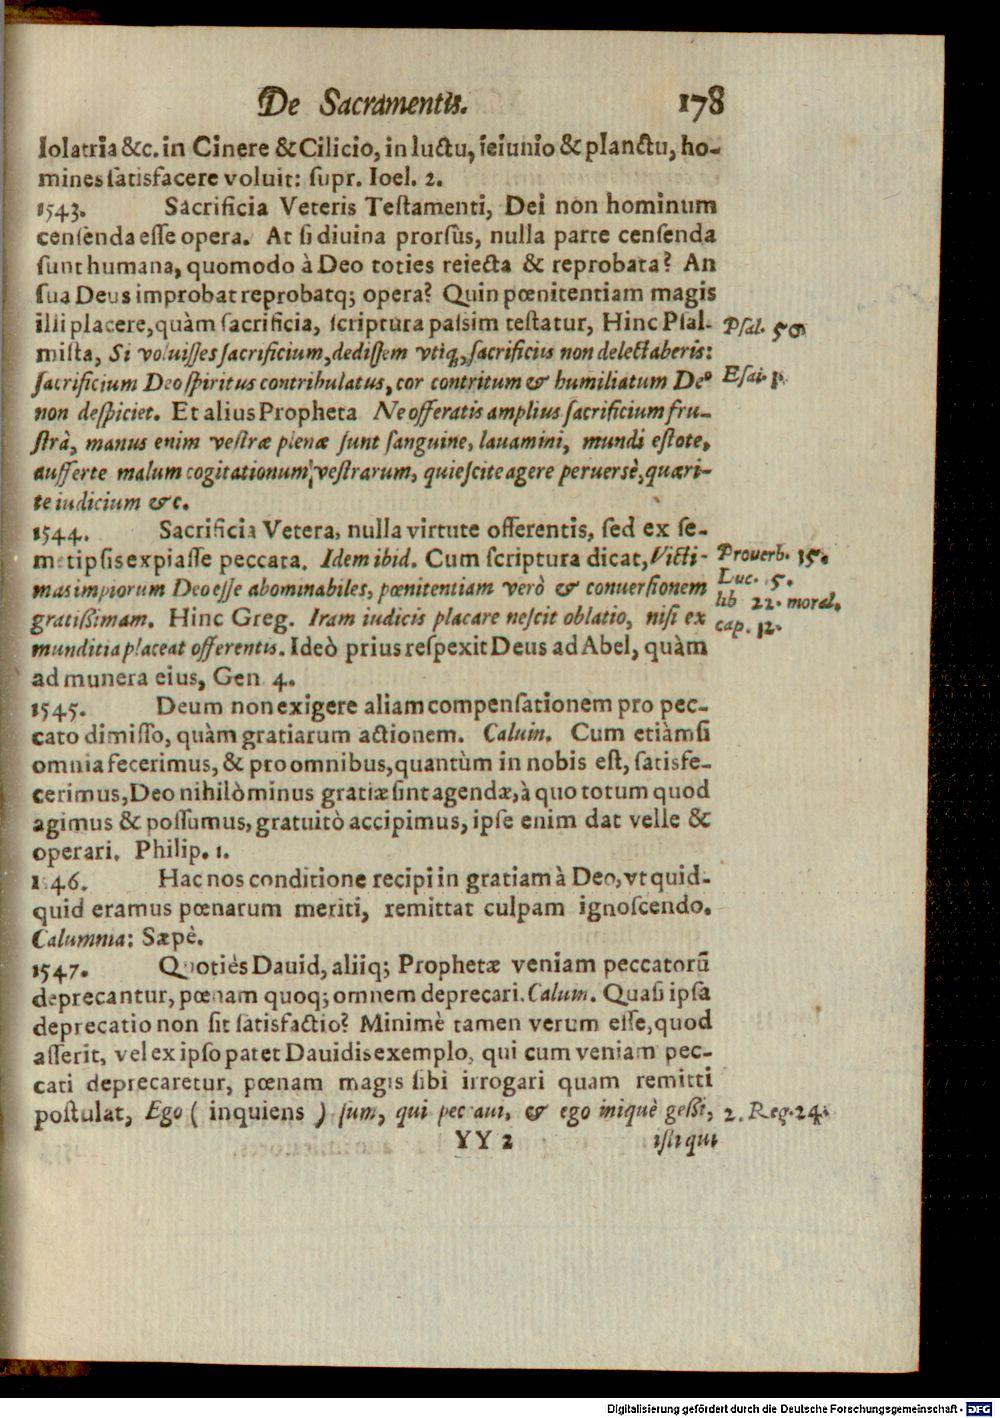 De Sacramentis. 178
lolatria &c. in Cinere & Cilicio, in luctu, ieiunio & planctu, ho-
mines ſatisfacere voluit: ſupr. Ioel. 2.
1543. Sacrificia Veteris Teſtamenti, Dei non hominum
cenſenda eſſe opera. At ſi diuina prorſus, nulla parte cenſenda
ſunt humana, quomodo à Deo toties reiecta & reprobata? An
ſua Deus improbat reprobatq; opera? Quin pœnitentiam magis
illi placere, quàm ſacrificia, ſcriptura paſsim teſtatur, Hinc Pſal- Pſal. 50.
miſta, Si voluiſſes ſacrificium, dediſſem vtiq, ſacrificiis non delectaberis:
ſacrificium Deo ſpiritus contribulatus, cor contritum & humiliatum Deº Eſai. 1.
non deſpiciet. Et alius Propheta Ne offeratis amplius ſacrificium fru-
ſtrà, manus enim veſtræ plenæ ſunt ſanguine, lauamini, mundi eſtote,
aufferte malum cogitationum veſtrarum, quieſcite agere peruersè, quæri-
te iudicium &c.
1544. Sacrificia Vetera, nulla virtute offerentis, ſed ex ſe-
metipſis expiaſſe peccata. Idem ibid. Cum ſcriptura dicat, Victi- Prouerb. 15.
mas impiorum Deo eſſe abominabiles, pœnitentiam verò & conuerſionem Luc. 5.
gratißimam. Hinc Greg. Iram iudicis placare neſcit oblatio, niſi ex lib 22. moral,
munditia placeat offerentis. Ideò prius reſpexit Deus ad Abel, quàm cap. 12.
ad munera eius, Gen 4.
1545. Deum non exigere aliam compenſationem pro pec-
cato dimiſſo, quàm gratiarum actionem. Caluin. Cum etiàmſi
omnia fecerimus, & pro omnibus, quantùm in nobis eſt, ſatisfe-
cerimus, Deo nihilòminus gratiæ ſint agendæ, à quo totum quod
agimus & poſſumus, gratuitò accipimus, ipſe enim dat velle &
operari. Philip. 1.
1546. Hac nos conditione recipi in gratiam à Deo, vt quid-
quid eramus pœnarum meriti, remittat culpam ignoſcendo.
Calumnia: Sæpè.
1547. Quotiès Dauid, aliiq; Prophetæ veniam peccatorū
deprecantur, pœnam quoq; omnem deprecari. Calum. Quaſi ipſa
deprecatio non ſit ſatisfactio? Minimè tamen verum eſſe, quod
aſſerit, vel ex ipſo patet Dauidis exemplo, qui cum veniam pec-
cati deprecaretur, pœnam magis ſibi irrogari quam remitti
poſtulat, Ego ( inquiens ) ſum, qui peccaui, & ego iniquè geßi, 2. Reg. 24.
YY 2 iſti qui
Digitalisierung gefördert durch die Deutsche Forschungsgemeinschaft - DFG